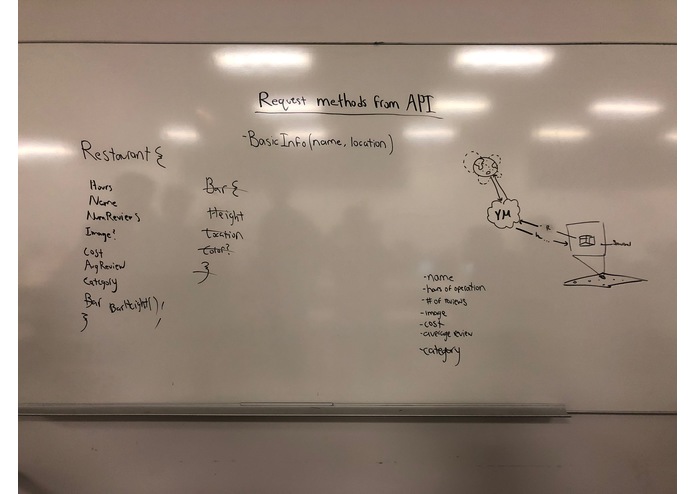 Request methods from API
-BasicInfo(name, location)
Restaurant {
Hours
Name
NumReviews
Image?
Cost
AvgReview
Category
Bar BarHeight();
}
Bar {
Height
Location
Color?
}
YM
-name
-hours of operation
-# of reviews
-image
-cost
-average review
-category